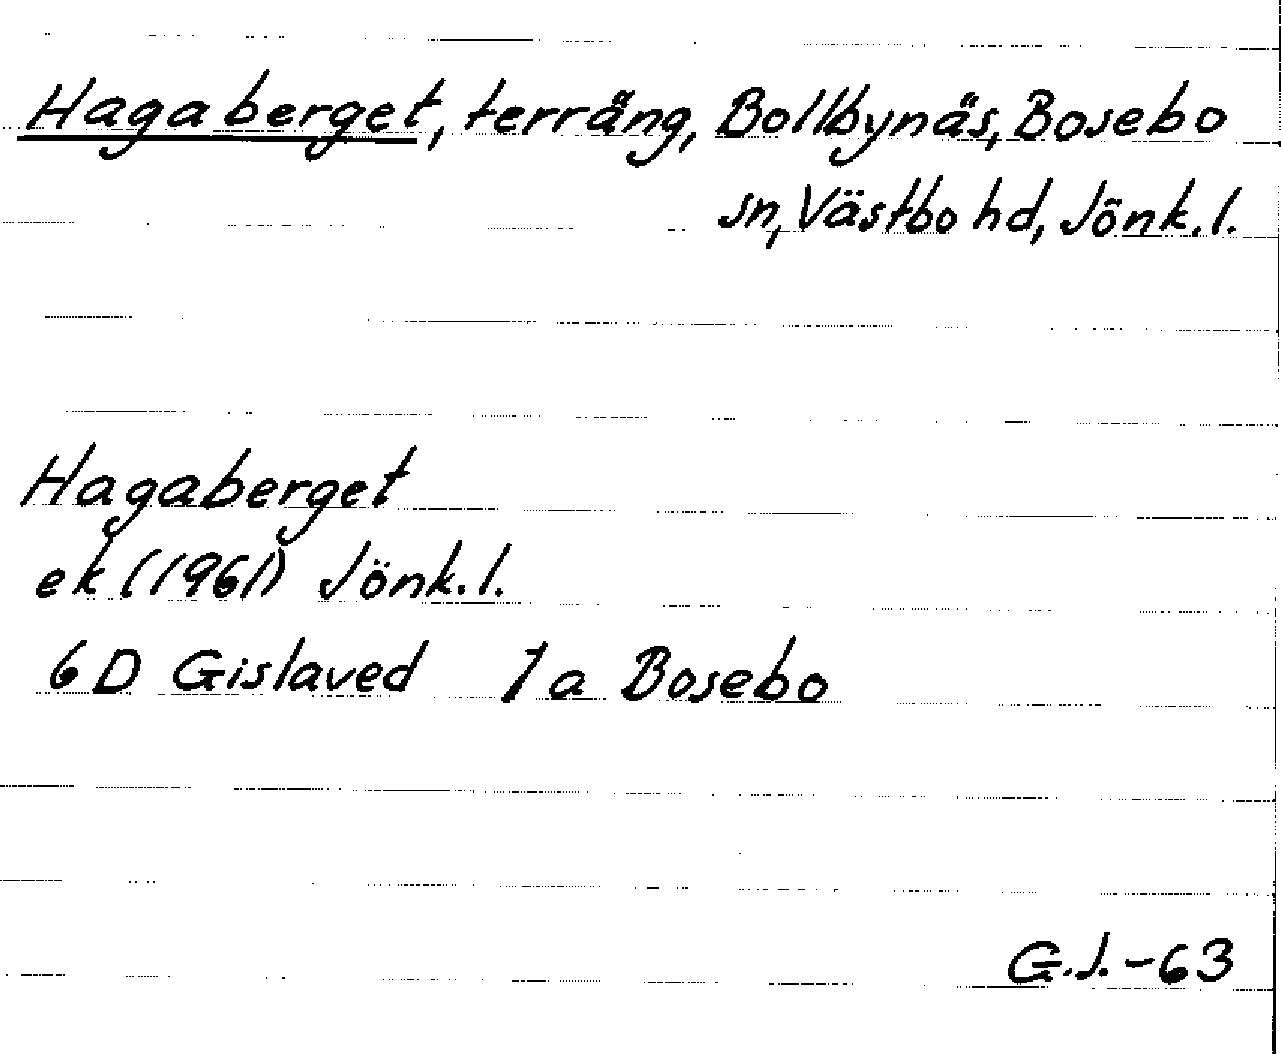 Hagaberget, terräng, Bollbynäs, Bosebo
sn, Västbo hd, Jönk.l.
Hagaberget
ek (1961) Jönk.l.
6D Gislaved 7a Bosebo
G.J.-63